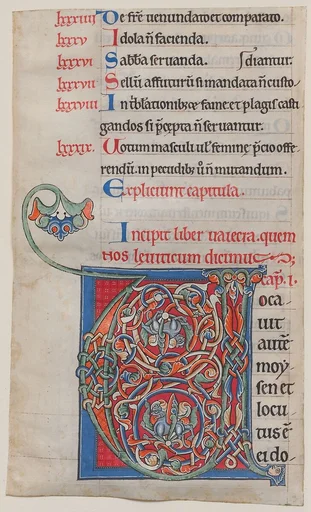 lxxxiiii De fr̄e uenundato et comparato.
lxxxv Idola n̄ facienda.
lxxxvi Sabb̄a seruanda. ſdiantur.
lxxxvii Sellm̄ affuturū si mandata n̄ custo
lxxxviii In t̄blationibꝫ fame et plagis casti
gandos si p̄cepta n̄ seruantur.
lxxxix. Uotum masculi ul̄ femine p̄cio offe
rendū. in pecudibꝫ ū n̄ mutandum.
Expliciunt capitula.
Incipit liber uaiecra. quem
nos leuiticum dicimus;
Cap̄. i.
Voca
uit
autē
moy
sen et
locu
tus ē
ei do